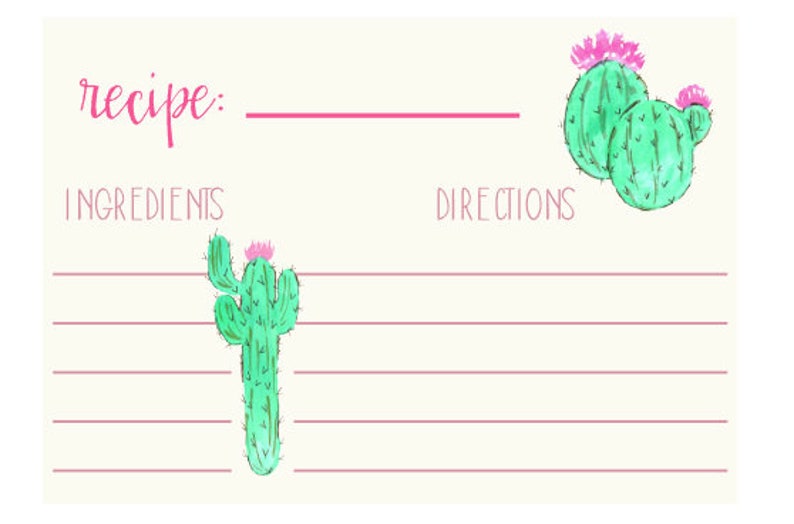 recipe:
INGREDIENTS
DIRECTIONS